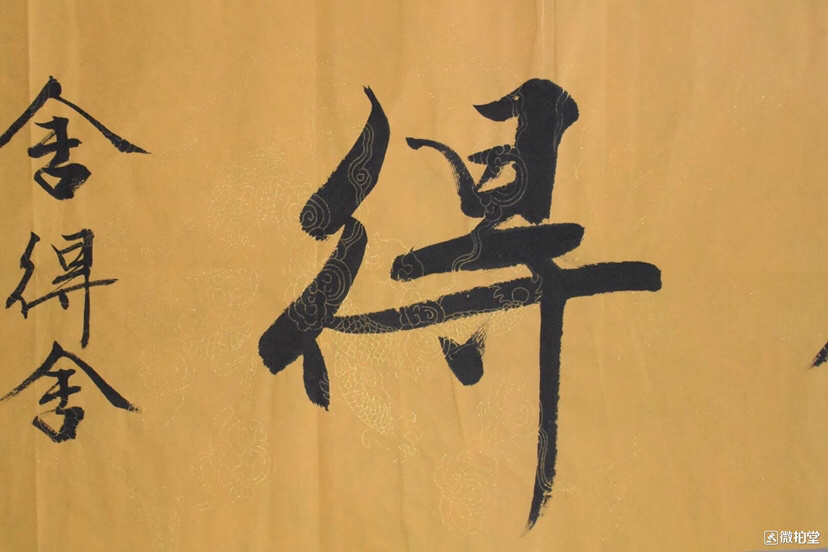 得
舍得舍
微拍堂